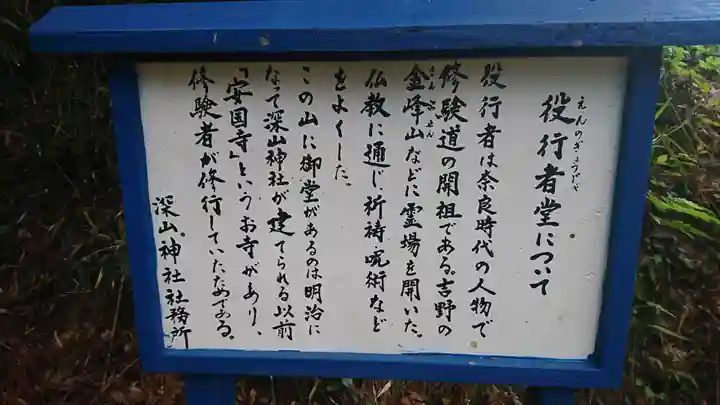 役行者堂について
えんのぎょうじゃ
役行者は奈良時代の人物で
修験道の開祖である。吉野の
金峰山などに霊場を開いた。
きんぷせん
仏教に通じ祈祷、呪術など
をよくした。
この山に御堂があるのは明治に
なって深山神社が建てられる以前
「安国寺」というお寺があり、
修験者が修行していたためである。
深山神社社務所